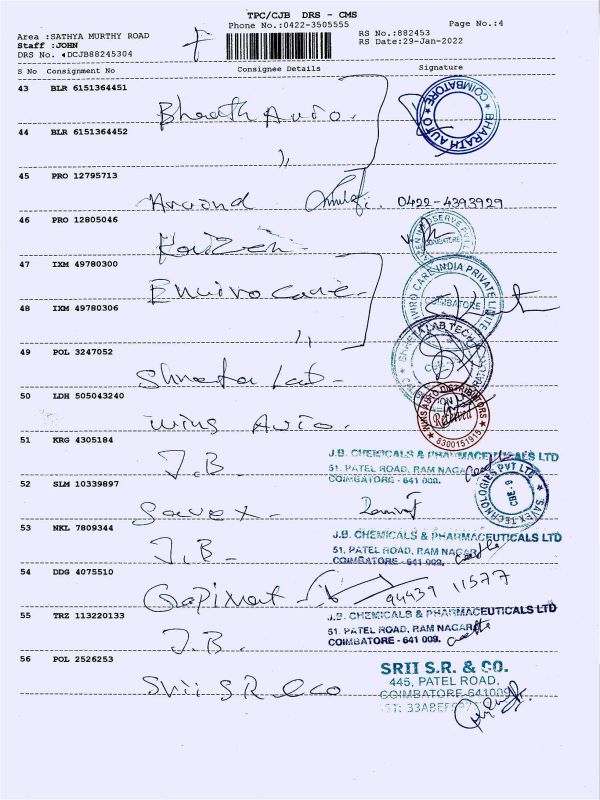 TPC/CJB DRS - CMS
Phone No.:0422-3505555
Page No.:4
Area :SATHYA MURTHY ROAD
RS No.:882453
Staff :JOHN
RS Date:29-Jan-2022
DRS No. DCJB88245304
S No Consignment No Consignee Details Signature
43 BLR 6151364451
Bharath Auto.
BHARATH AUTO COIMBATORE
44 BLR 6151364452
,,
45 PRO 12795713
Aravind 0422-4393929
46 PRO 12805046
Kaizen
COIMBATORE
47 IXM 49780300
Enviro care
ENVIRO CARE INDIA PRIVATE LIMITED
COIMBATORE
48 IXM 49780306
,,
49 POL 3247052
Shneeta Lab
LAB TECH
50 LDH 505043240
Wins Auto.
WINS AUTO DISTRIBUTORS
Received
6300151915
51 KRG 4305184
J.B
J.B. CHEMICALS & PHARMACEUTICALS LTD
51, PATEL ROAD, RAM NAGAR
COIMBATORE - 641 009.
52 SLM 10339897
Savex
SAVEX TECHNOLOGIES PVT LTD
CBE-9
53 NKL 7809344
J.B
J.B. CHEMICALS & PHARMACEUTICALS LTD
51, PATEL ROAD, RAM NAGAR
COIMBATORE - 641 009.
54 DDG 4075510
Gopinat 94439 11577
55 TRZ 113220133
J.B.
J.B. CHEMICALS & PHARMACEUTICALS LTD
51, PATEL ROAD, RAM NAGAR
COIMBATORE - 641 009.
56 POL 2526253
Srii S R & co
SRII S.R. & CO.
445, PATEL ROAD,
COIMBATORE-641009